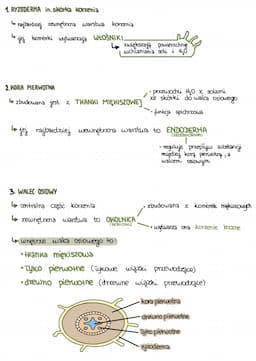 1. RYZODERMA in. skórka korzenia
↳ najbardziej zewnętrzna warstwa korzenia
↳ jej komórki wytwarzają WŁOŚNIKI
↳ zwiększają powierzchnię
wchłaniania soli i H₂O
2. KORA PIERWOTNA
↳ zbudowana jest z TKANKI MIĘKISZOWEJ
• przewodzi H₂O z solami
ze skórki do walca osiowego
• funkcja spichrzowa
↳ jej najbardziej wewnętrzna warstwa to ENDODERMA
• reguluje przepływ substancji
między korą pierwotną, a
walcem osiowym
3. WALEC OSIOWY
↳ centralna część korzenia
↳ zewnętrzna warstwa to OKOLNICA
↳ zbudowana z komórek miękiszowych
↳ wytwarza ona korzenie boczne
↳ wnętrze walca osiowego to:
• tkanka miękiszowa
• łyko pierwotne (łykowe wiązki przewodzące)
• drewno pierwotne (drewne wiązki przewodzące)
kora pierwotna
drewno pierwotne
łyko pierwotne
ryzoderma